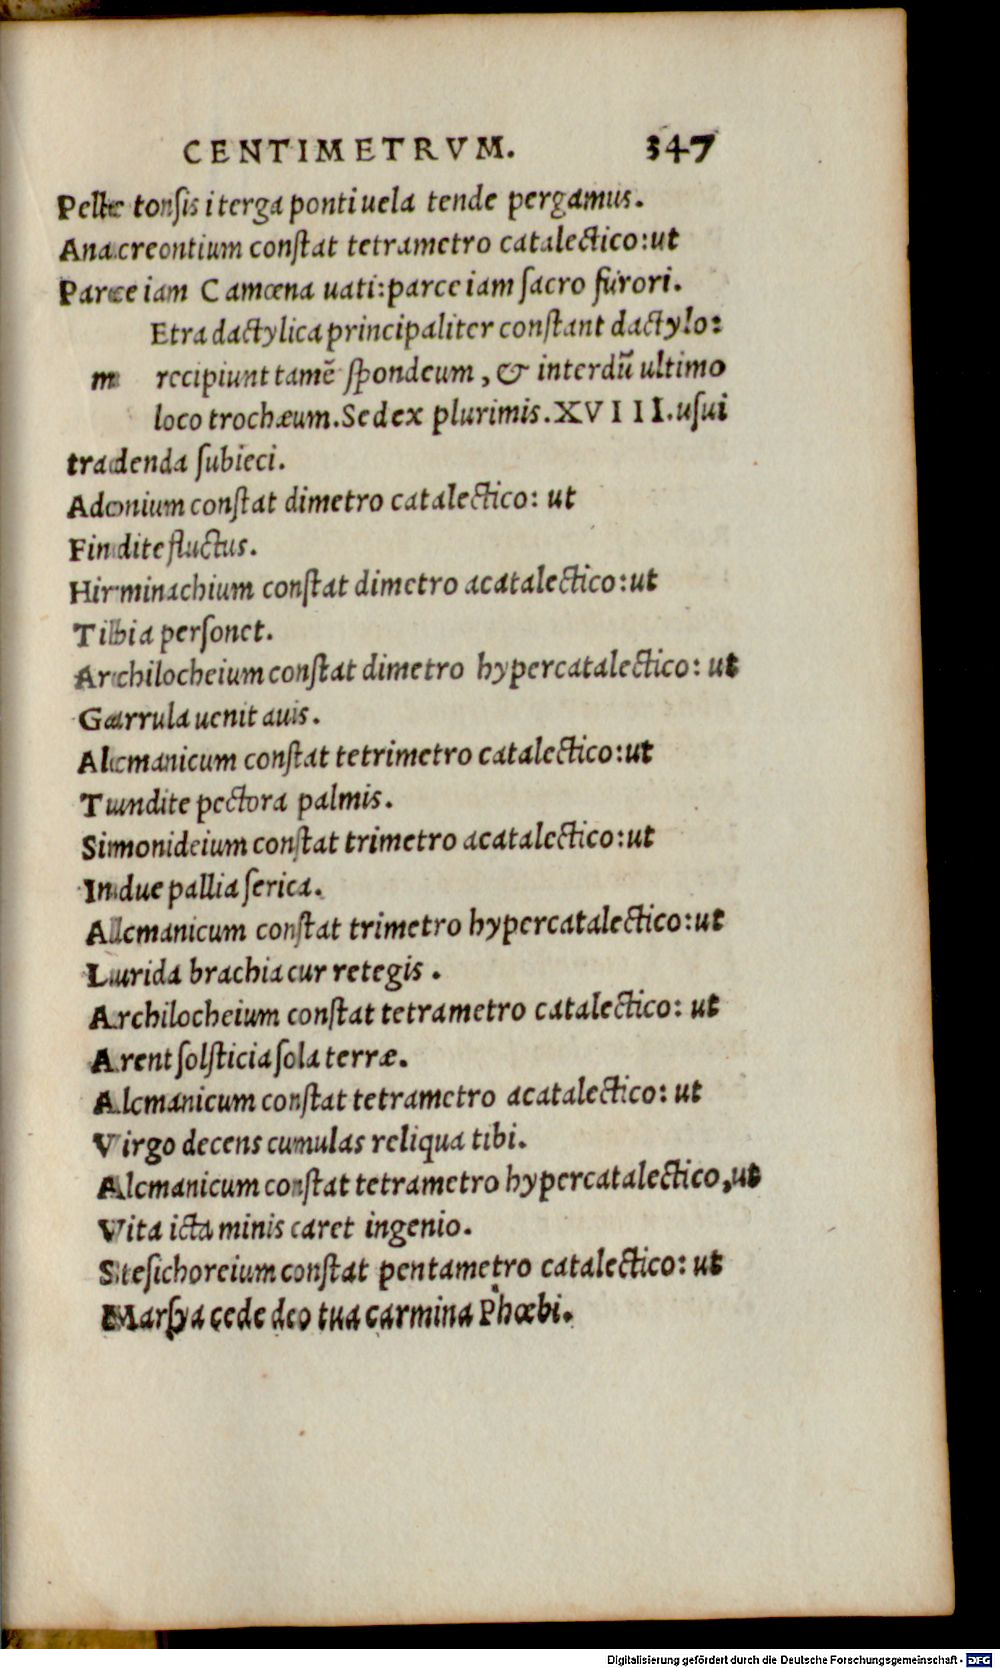 CENTIMETRVM. 347
Pelle tonſis i terga ponti uela tende pergamus.
Anacreontium conſtat tetrametro catalectico:ut
Parce iam Camœna uati:parce iam ſacro furori.
Etra dactylica principaliter conſtant dactylo:
m recipiunt tamē ſpondeum, & interdū ultimo
loco trochæum.Sed ex plurimis.XVIIII.uſui
tradenda ſubieci.
Adonium conſtat dimetro catalectico: ut
Findite fluctus.
Hirminachium conſtat dimetro acatalectico:ut
Tibia perſonet.
Archilocheium conſtat dimetro hypercatalectico: ut
Garrula uenit auis.
Alcmanicum conſtat tetrimetro catalectico:ut
Tundite pectora palmis.
Simonideium conſtat trimetro acatalectico:ut
Indue pallia ſerica.
Alcmanicum conſtat trimetro hypercatalectico:ut
Lurida brachia cur retegis.
Archilocheium conſtat tetrametro catalectico: ut
Arent ſolſticia ſola terræ.
Alcmanicum conſtat tetrametro acatalectico: ut
Virgo decens cumulas reliqua tibi.
Alcmanicum conſtat tetrametro hypercatalectico,ut
Vita icta minis caret ingenio.
Steſichoreium conſtat pentametro catalectico: ut
Marſya cede deo tua carmina Phœbi.
Digitalisierung gefördert durch die Deutsche Forschungsgemeinschaft - DFG